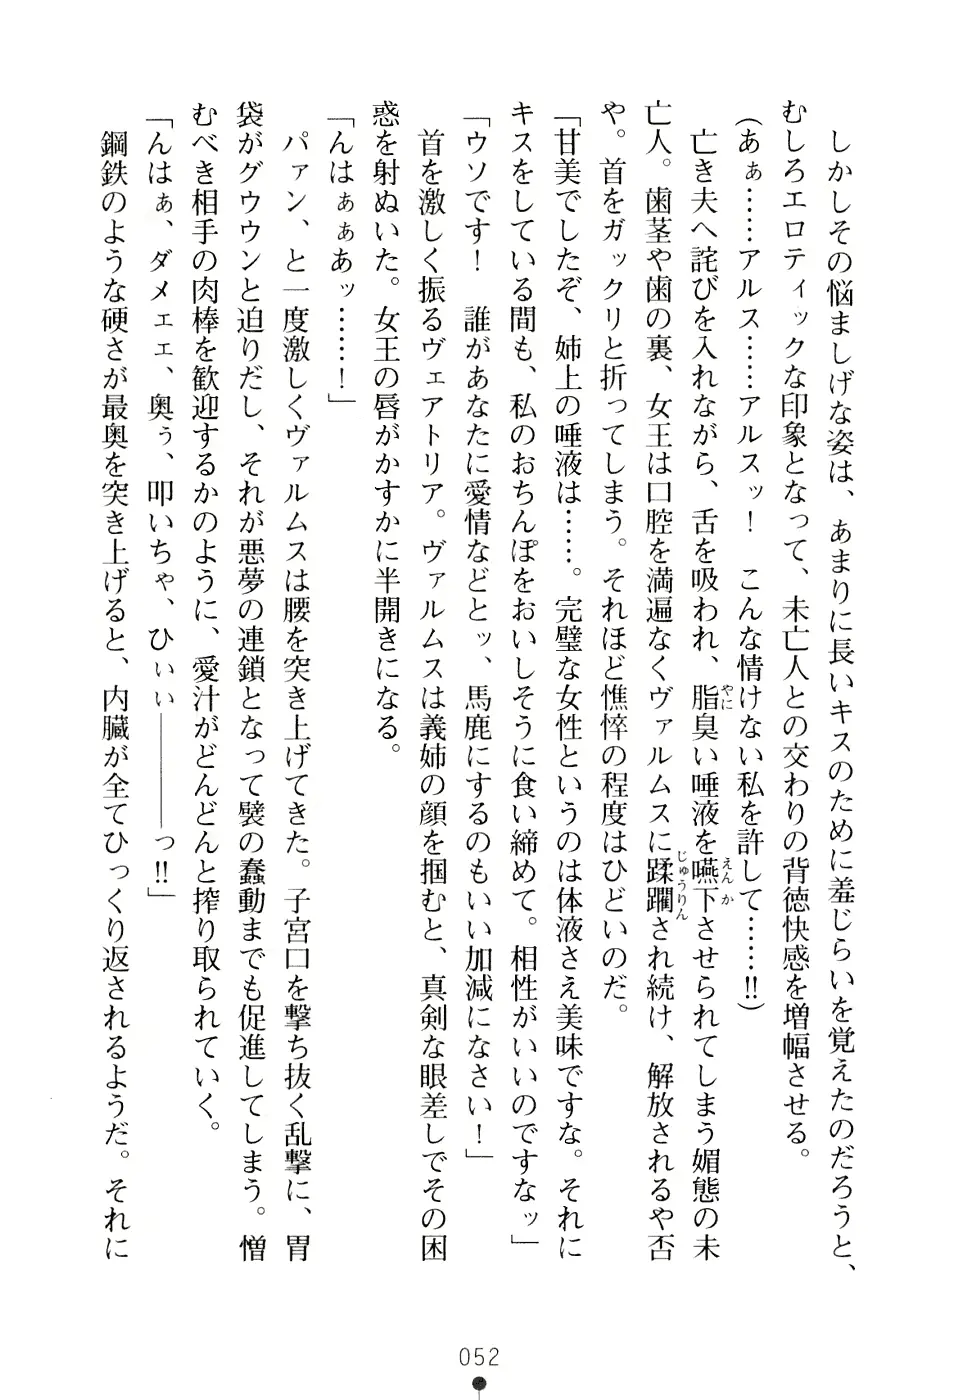 しかしその悩ましげな姿は、あまりに長いキスのために羞じらいを覚えたのだろうと、
むしろエロティックな印象となって、未亡人との交わりの背徳快感を増幅させる。
(あぁ……アルス……アルスッ！　こんな情けない私を許して……!!)
やに えんか
亡き夫へ詫びを入れながら、舌を吸われ、脂臭い唾液を嚥下させられてしまう媚態の未
じゅうりん
亡人。歯茎や歯の裏、女王は口腔を満遍なくヴァルムスに蹂躙され続け、解放されるや否
や。首をガックリと折ってしまう。それほど憔悴の程度はひどいのだ。
「甘美でしたぞ、姉上の唾液は……。完璧な女性というのは体液さえ美味ですな。それに
キスをしている間も、私のおちんぽをおいしそうに食い締めて。相性がいいのですなッ」
「ウソです！　誰があなたに愛情などとッ、馬鹿にするのもいい加減になさい！」
首を激しく振るヴェアトリア。ヴァルムスは義姉の顔を掴むと、真剣な眼差しでその困
惑を射ぬいた。女王の唇がかすかに半開きになる。
「んはぁぁあッ……！」
パァン、と一度激しくヴァルムスは腰を突き上げてきた。子宮口を撃ち抜く乱撃に、胃
袋がグウウンと迫りだし、それが悪夢の連鎖となって襞の蠢動までも促進してしまう。憎
むべき相手の肉棒を歓迎するかのように、愛汁がどんどんと搾り取られていく。
「んはぁ、ダメェェ、奥ぅ、叩いちゃ、ひぃぃ――――っ!!」
鋼鉄のような硬さが最奥を突き上げると、内臓が全てひっくり返されるようだ。それに
052